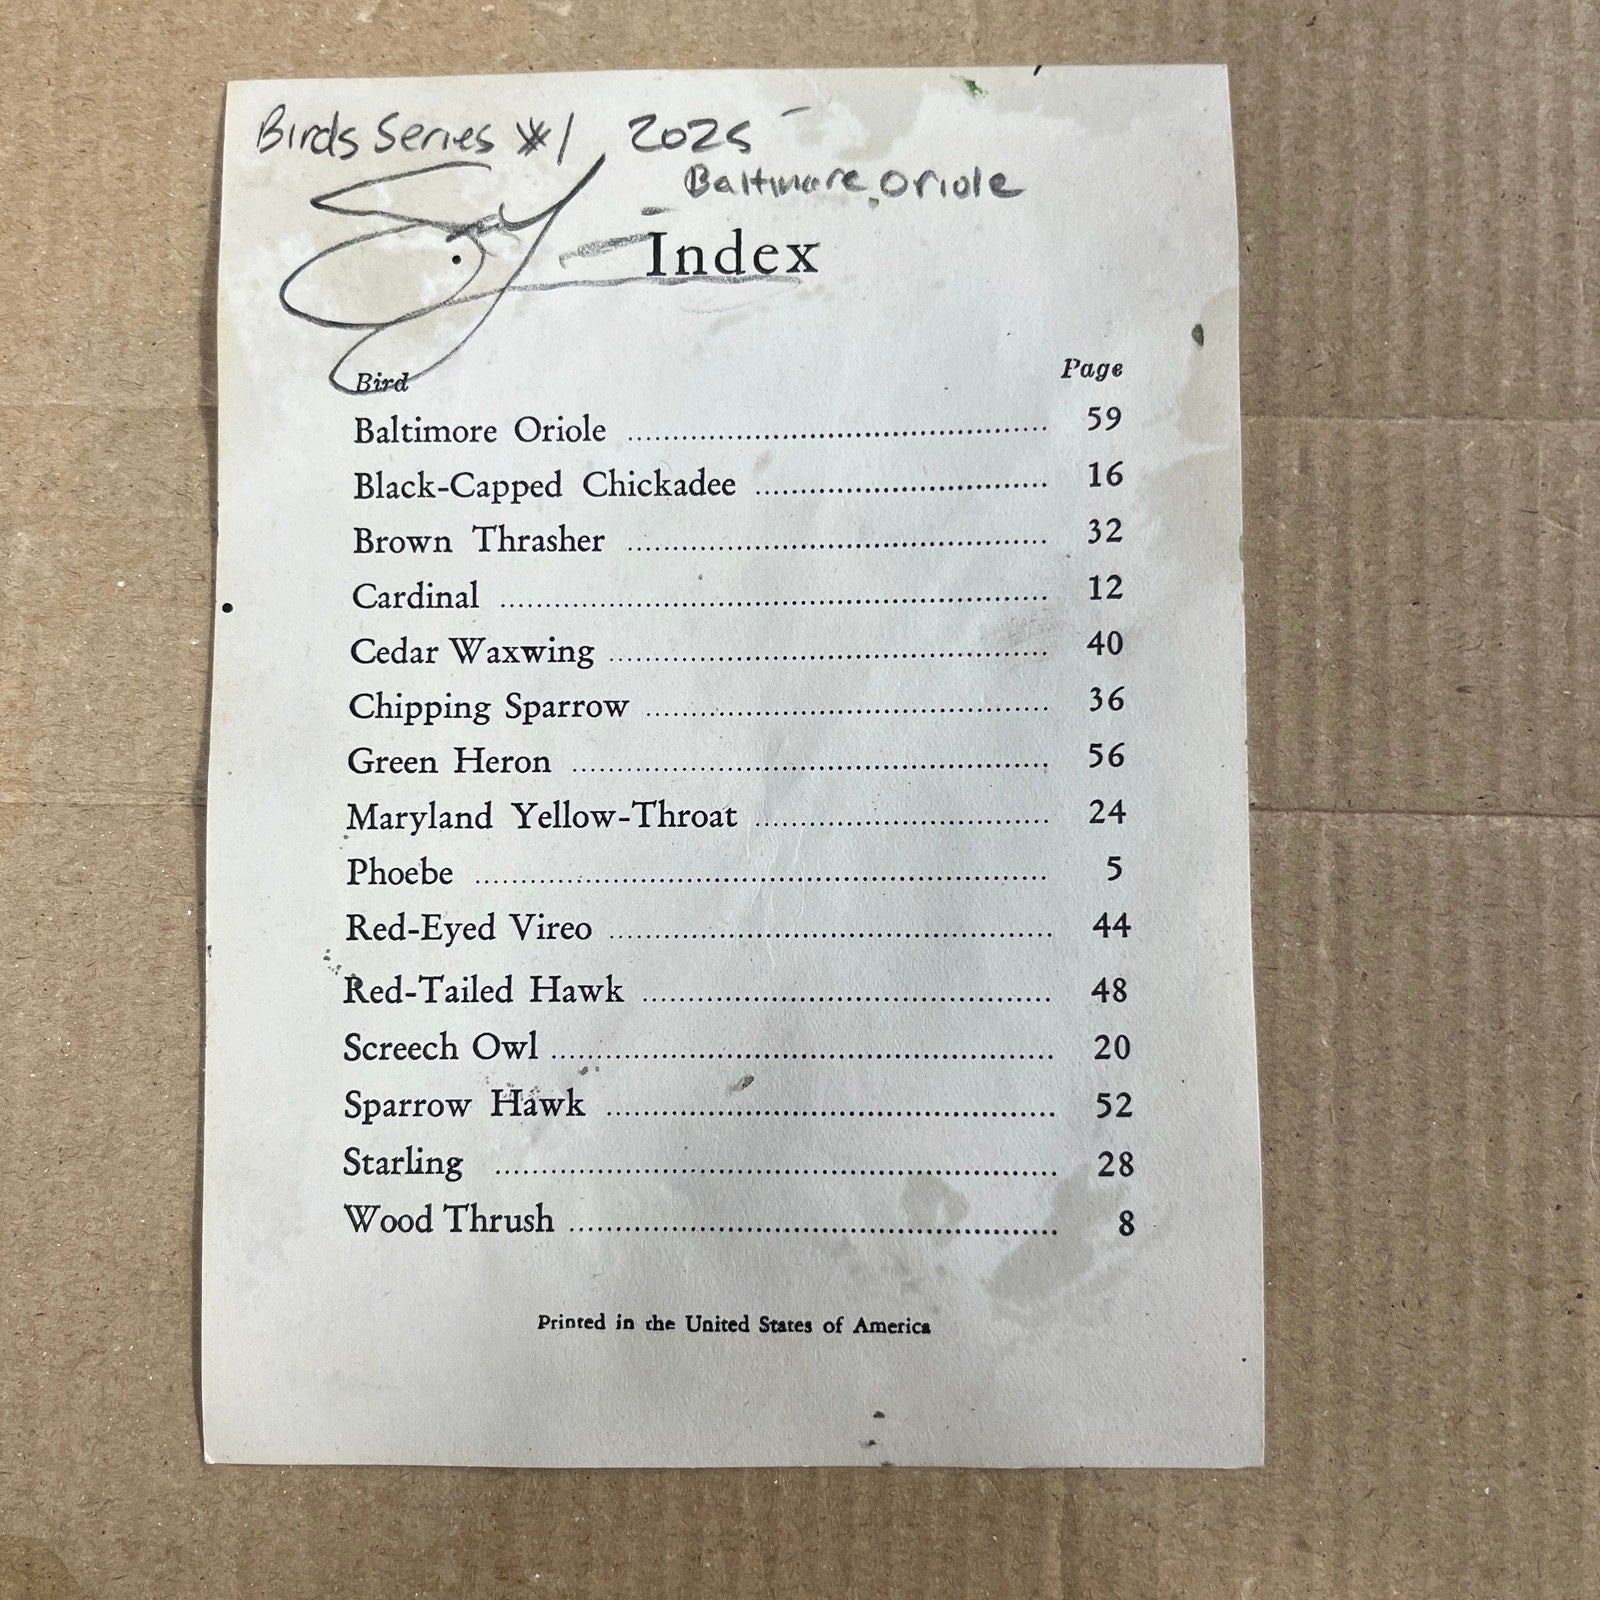 Birds Series #1 2025
Baltimore Oriole
Index
Bird Page
Baltimore Oriole ........ 59
Black-Capped Chickadee ........ 16
Brown Thrasher ........ 32
Cardinal ........ 12
Cedar Waxwing ........ 40
Chipping Sparrow ........ 36
Green Heron ........ 56
Maryland Yellow-Throat ........ 24
Phoebe ........ 5
Red-Eyed Vireo ........ 44
Red-Tailed Hawk ........ 48
Screech Owl ........ 20
Sparrow Hawk ........ 52
Starling ........ 28
Wood Thrush ........ 8
Printed in the United States of America